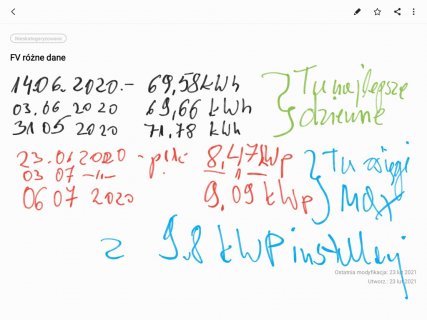 Nieskategoryzowane
FV różne dane
14.06.2020.- 69,58kWh
03.06 2020 69,66 kWh
31 05 2020 71,78 kWh
Tu najlepsze
dzienne
23.06 2020 - piki 8,47kWp
03 07 -11-
06 07 2020 9,09 kWp
Tu osiągi
MAX
z 9.8 kWP instalacji
Ostatnia modyfikacja: 23 lut 2021
Utworz.: 23 lut 2021